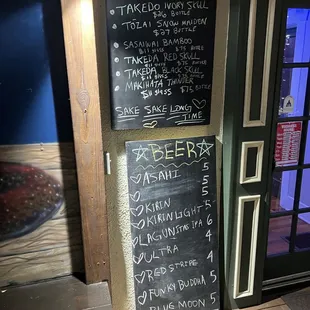 TAKEDO IVORY SKULL
$26 BOTTLE
TOZAI SNOW MAIDEN
$27 BOTTLE
SASAIWAI BAMBOO
$75 BOTTLE
TAKEDA RED SKULL
TAKEDA BLACK SKULL
MAKIHATA THUNDER
$75 BOTTLE
SAKE SAKE LONG TIME
BEER
ASAHI 5
5
KIRIN 5
KIRIN LIGHT 5
LAGUNITAS IPA 6
ULTRA 4
RED STRIPE 4
FUNKY BUDDHA 5
BLUE MOON 5